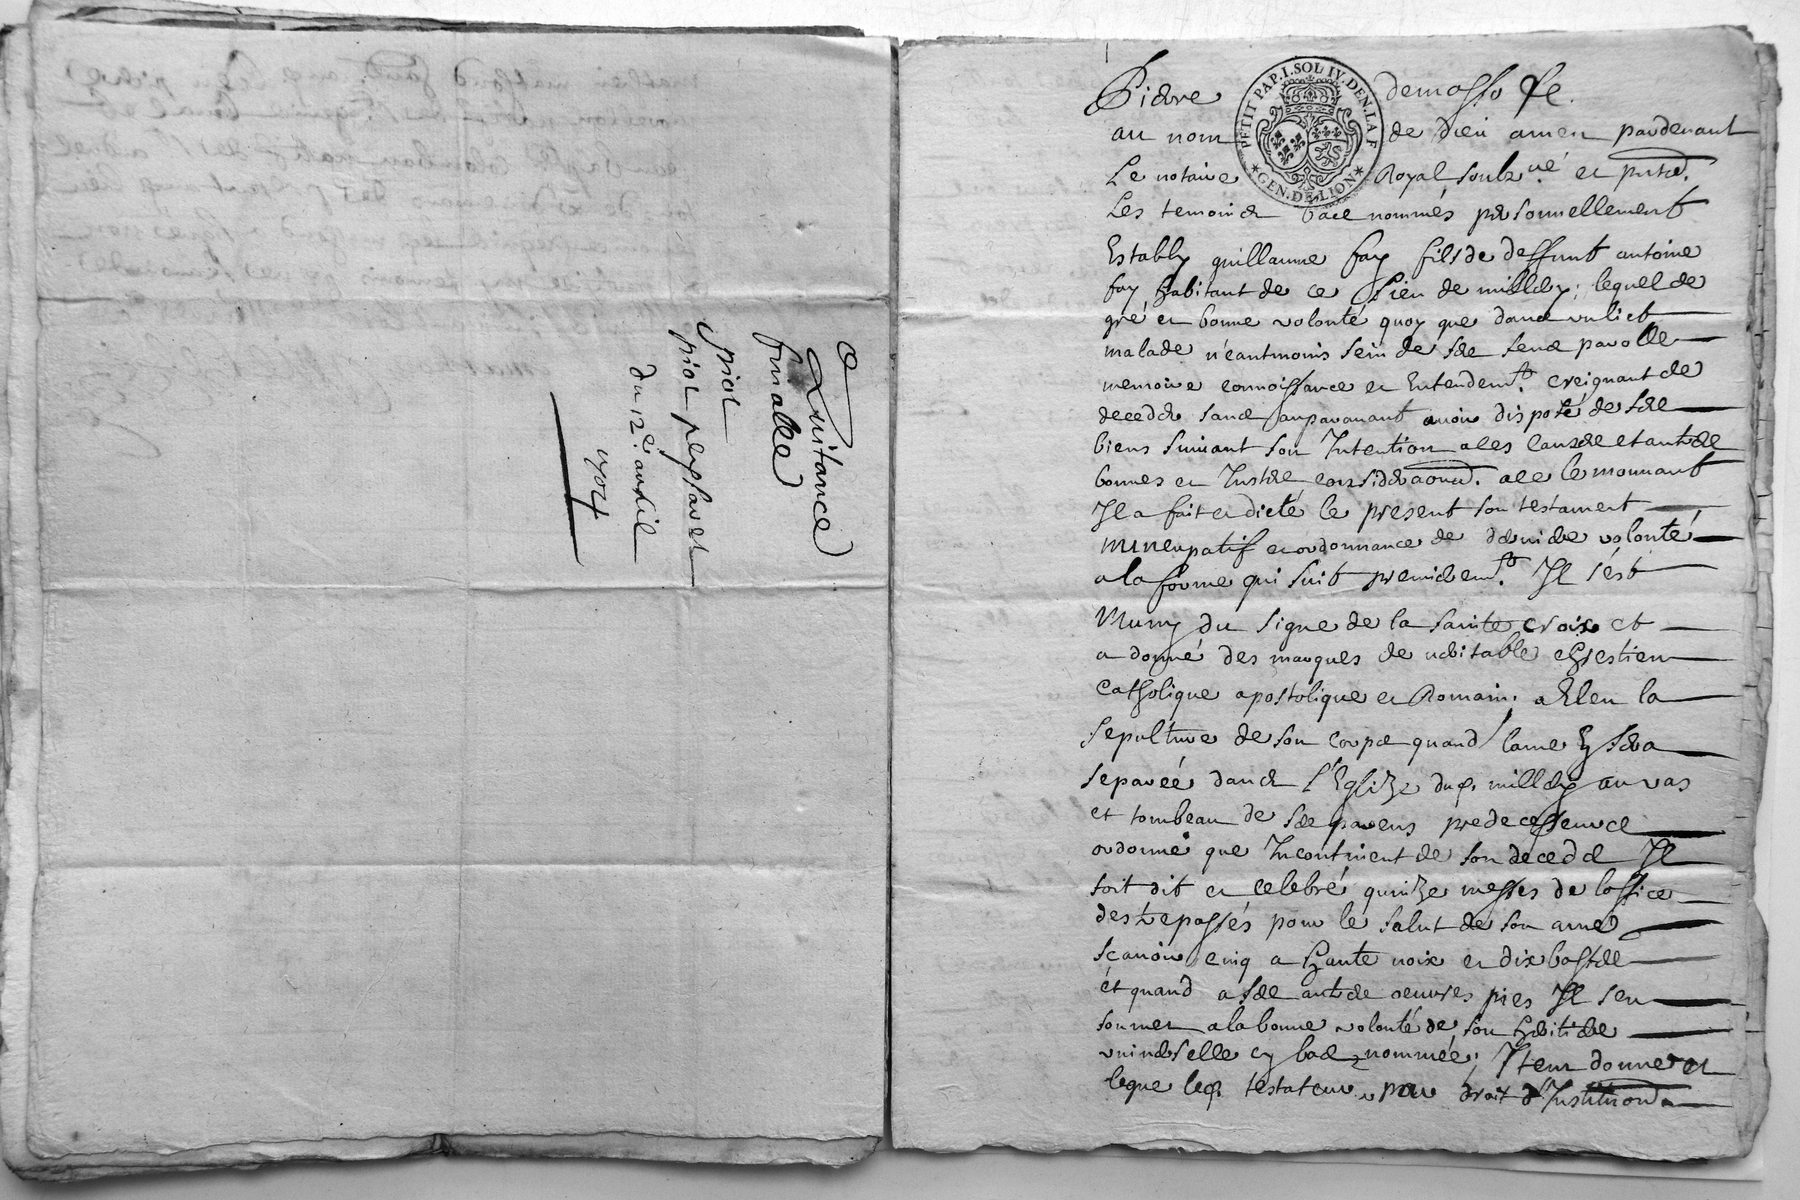 Quitance
finalle
piot
piot peyssaret
du 12e. avril
1704
PETIT PAP. I. SOL IV. DEN. LA F
GEN. DE LION
Pierre demosso
au nom de dieu amen pardevant
Le notaire Royal soubzné et pnts
Les temoins bas nommés personnellement
Estably guillaume fay fils de deffunt antoine
fay habitant de ce lieu de millery; lequel de
gré et bonne volonté quoy que dans un lict
malade néantmoins sein de ses sens parolle
memoire connoissance et Entendemt. creignant de
deceder sans auparavant avoir disposé de ses
biens suivant son Intention a ces causes et autres
bonnes et Justes considerãons. ace le mouvant
Il a fait et dicté le present son testament
nuncupatif et ordonnance de derniere volonté
a la forme qui suit premieremt. Il s'est
Muny du signe de la sainte croix et
a donné des marques de veritable chrestien
Catholique apostolique et Romain; a Elen la
sepulture de son corps quand l'ame Ey sera
separéé dans L'Eglize dud. millery au vas
et tombeau de ses parens predecesseurs
ordonné que Incontinent de son décéds Il
soit dit et celebré quinze messes de loffice
des trepassés pour le salut de son ame
scavoir cinq a haute voix et dix basses
et quand a ses autres oeuvres pies Il s'en
soumet a la bonne volonté de son heritiere
universelle cy bas nommée; Item donne et
legue led. testateur par droit d'Institution